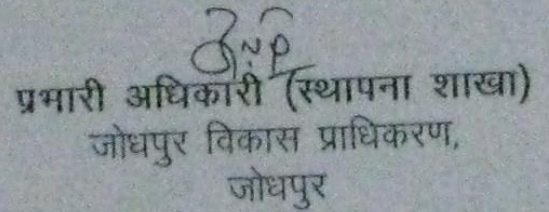 प्रभारी अधिकारी (स्थापना शाखा)
जोधपुर विकास प्राधिकरण,
जोधपुर